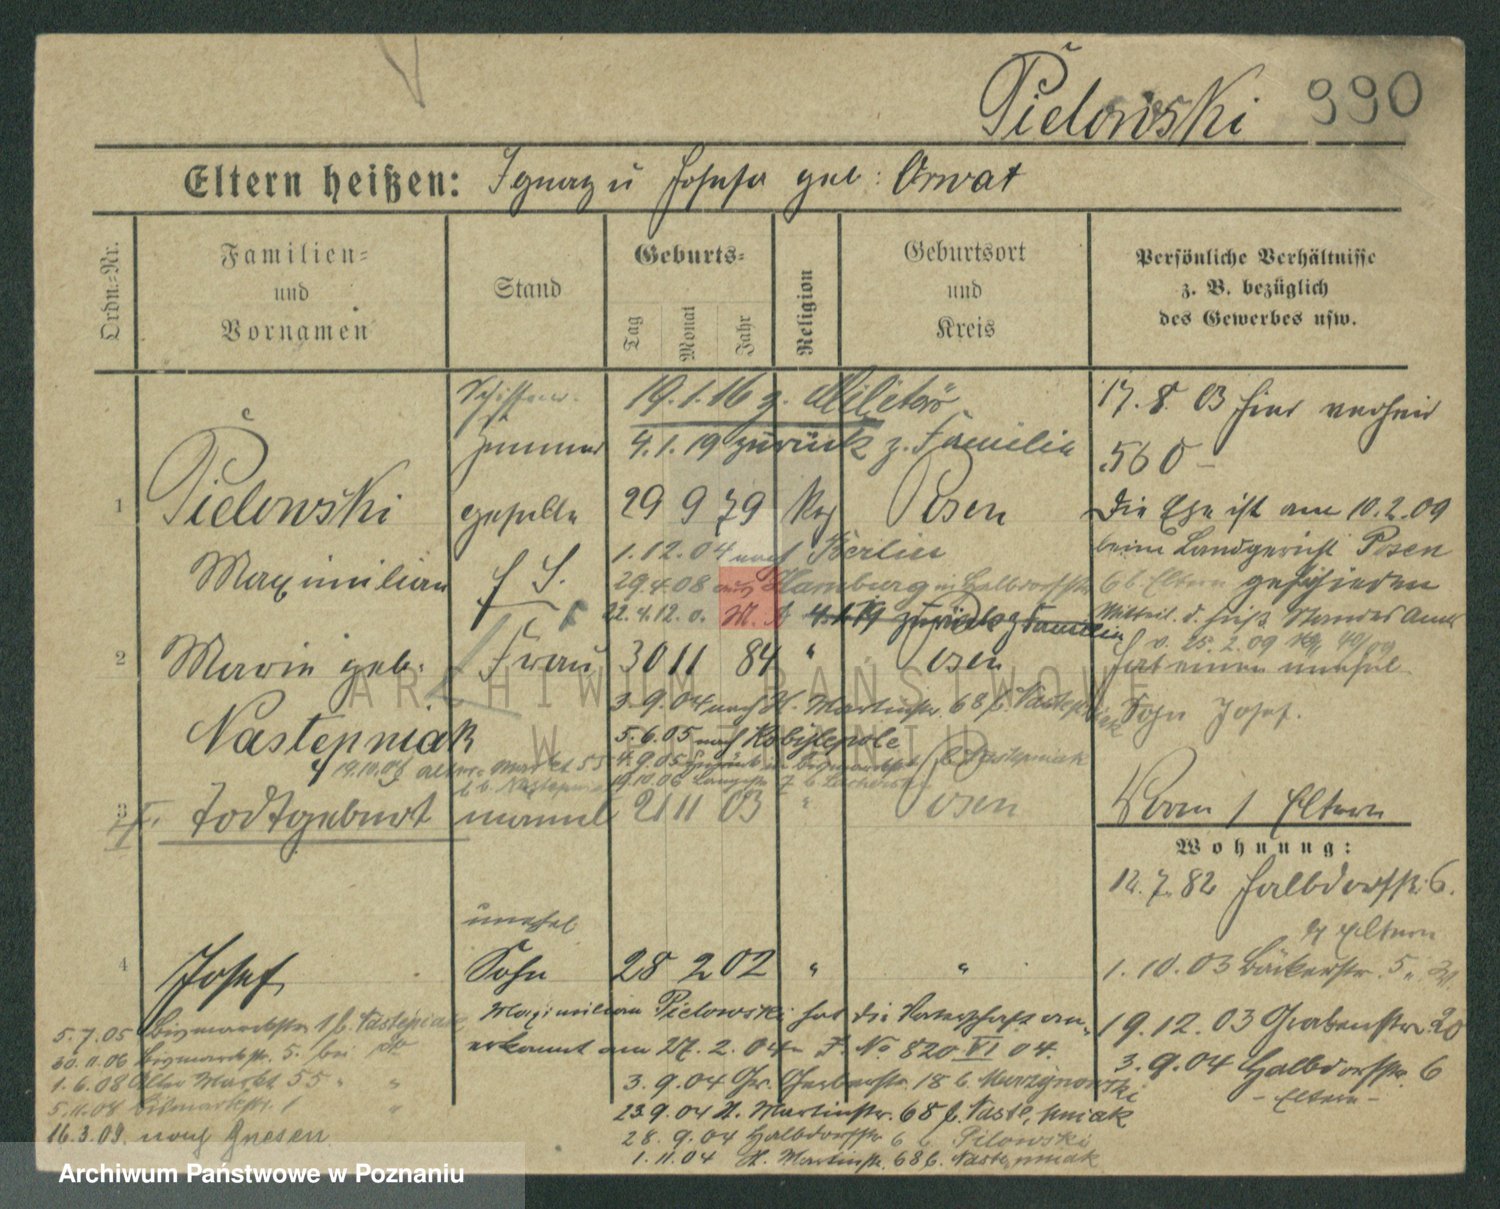 Pielowski 990
Eltern heißen: Ignaz u Josefa geb: Orwat
Ordn.=Nr.
Familien=
und
Vornamen
Stand
Geburts=
Tag
Monat
Jahr
Religion
Geburtsort
und
Kreis
Persönliche Verhältnisse
z. B. bezüglich
des Gewerbes usw.
19.1.16 z. Militär
17. 8. 03 hier verheir
Zimmer
4.1.19 zurück z. Familie
560-
1 Pielowski
geselle 29 9 79 Posen
Die Ehe ist am 10.2.09
1.12.04 nach Berlin
beim Landgericht Posen
Maximilian
29.4.08 aus Hamburg Halbdorfstr 6 b. Eltern geschieden
22.4.12. 4.1.19 zurück z Familie
v. 25.2.09
2 Marie geb. Frau 30 11 84 " Posen
hat einen unehel.
3.9.04 nach St. Martinstr. 68 b. Nastepniak
Sohn Josef.
Nastepniak
5.6.05 nach Kobylepole
3 Todtgeburt männl 21 11 03 " Posen
Eltern
Wohnung:
12.7.82 Halbdorfstr. 6.
unehel
b Eltern
4 Josef Sohn 28 2 02 " "
1.10.03 Bäckerstr. 5
Maximilian Pielowski hat die Vaterschaft an-
19.12.03 Grabenstr. 20
5.7.05 Bismarckstr. 1 b. Nastepniak
erkannt am 27.2.04 J. No 820 VI 04.
30.11.06 Bismarckstr. 5. bei
3.9.04 Halbdorfstr. 6
1.6.08 Alter Markt 55 " "
3.9.04 Gr. Gerberstr. 18 b. Marzynowski
- Eltern -
5.11.08 Bismarckstr. 1 "
23.9.04 St. Martinstr. 68 b. Nastepniak
16.3.09. nach Gnesen
28.9.04 Halbdorfstr. 6 b. Pilowski
1.11.04 St. Martinstr. 68 b. Nastepniak
ARCHIWUM PAŃSTWOWE
W POZNANIU
Archiwum Państwowe w Poznaniu